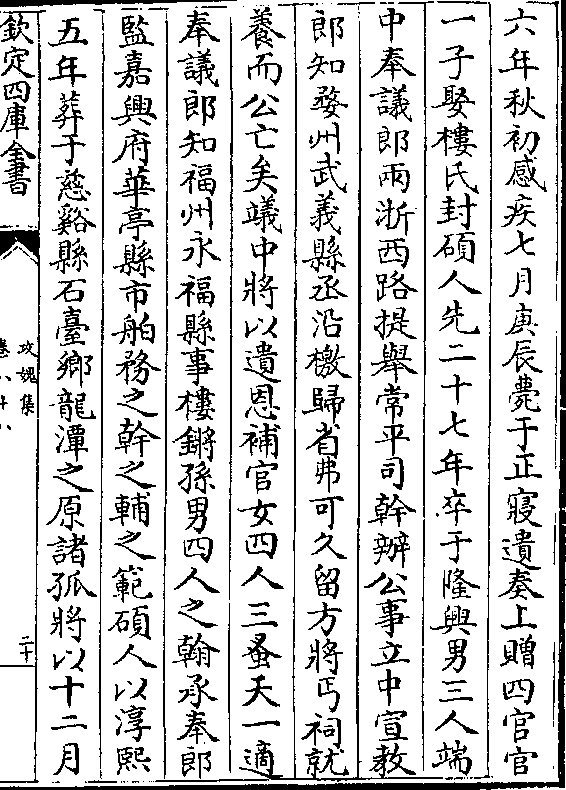 六年秋初感疾七月庚辰薨于正寢遺奏上贈四官官
一子娶樓氏封碩人先二十七年卒于隆興男三人端
中奉議郎兩浙西路提舉常平司幹辦公事立中宣教
郎知婺州武義縣丞沿檄歸省弗可久留方將丐祠就
養而公亡矣㠖中將以遺恩補官女四人三蚤夭一適
奉議郎知福州永福縣事樓鏘孫男四人之翰承奉郎
監嘉興府華亭縣市舶務之幹之輔之範碩人以淳熙
五年葬于慈谿縣石臺鄉龍潭之原諸孤將以十二月
欽定四庫全書
攻媿集
卷八十八
二十